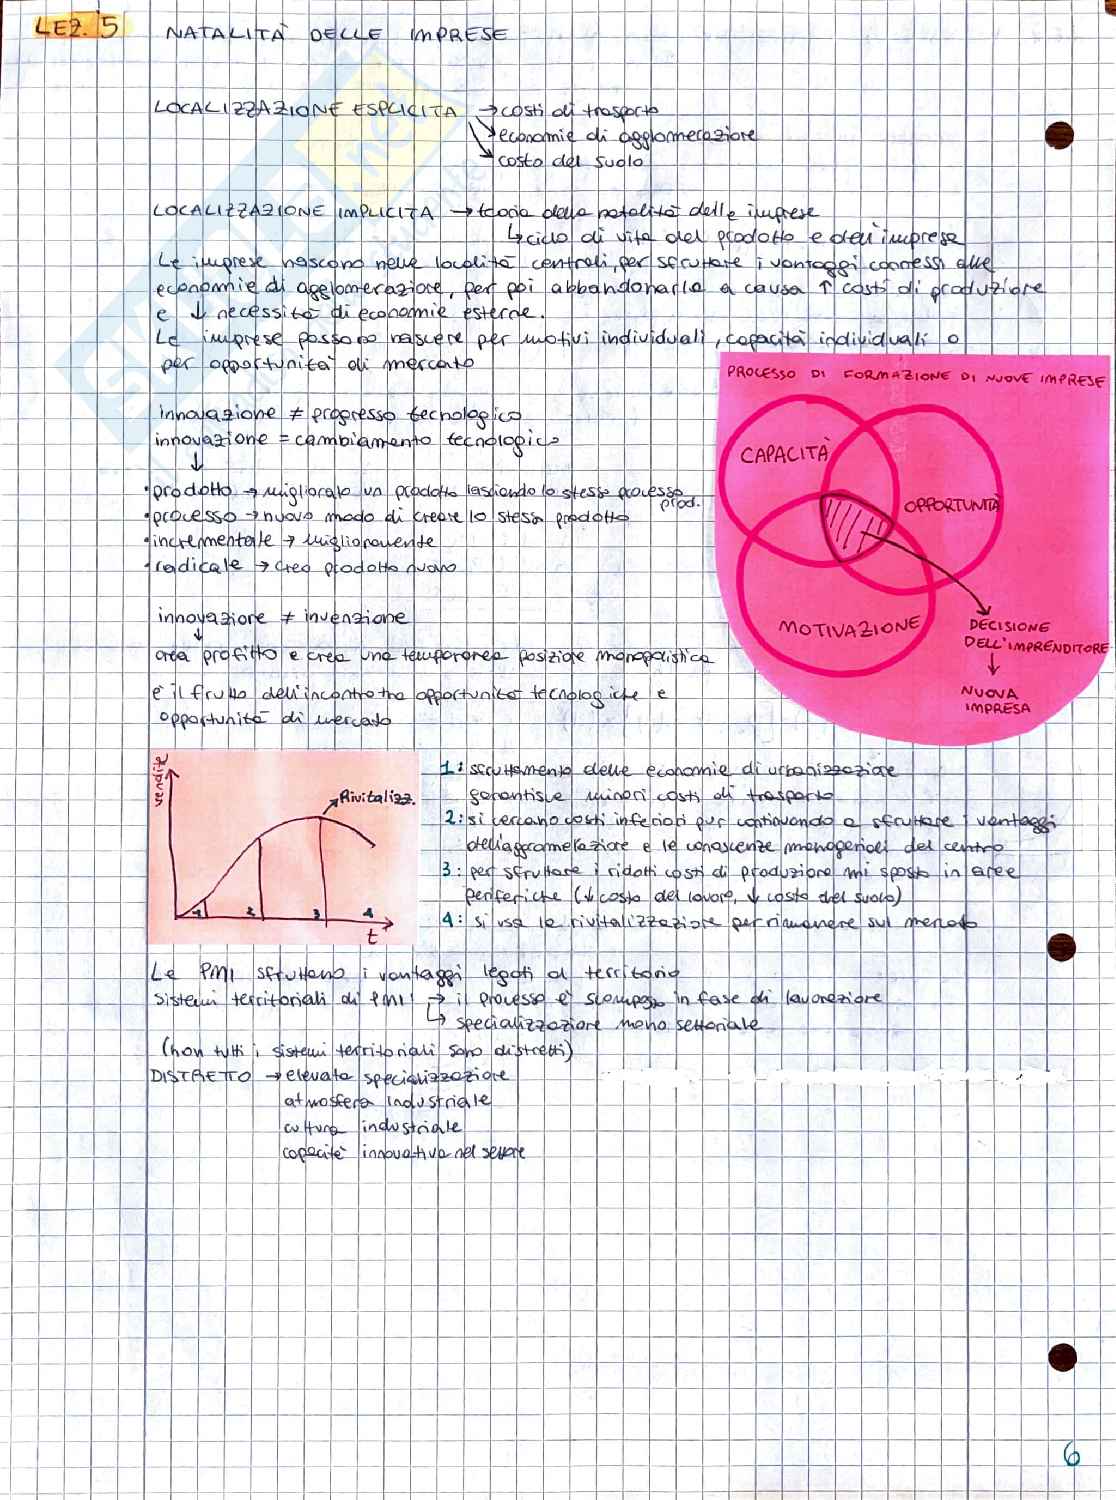 LEZ. 5 NATALITÀ DELLE IMPRESE
LOCALIZZAZIONE ESPLICITA → costi di trasporto
→ economie di agglomerazione
→ costo del suolo
LOCALIZZAZIONE IMPLICITA → teoria della natalità delle imprese
↳ ciclo di vita del prodotto e dell'imprese
Le imprese nascono nelle località centrali, per sfruttare i vantaggi connessi alle
economie di agglomerazione, per poi abbandonarla a causa ↑ costi di produzione
e ↓ necessità di economie esterne.
Le imprese possono nascere per motivi individuali, capacità individuali o
per opportunità di mercato
PROCESSO DI FORMAZIONE DI NUOVE IMPRESE
CAPACITÀ
OPPORTUNITÀ
MOTIVAZIONE
DECISIONE
DELL'IMPRENDITORE
↓
NUOVA
IMPRESA
innovazione ≠ progresso tecnologico
innovazione = cambiamento tecnologico
↓
• prodotto → migliorato un prodotto lasciando lo stesso processo
prod.
• processo → nuovo modo di creare lo stesso prodotto
• incrementale → miglioramente
• radicale → creo prodotto nuovo
innovazione ≠ invenzione
↓
crea profitto e crea una temporanea posizione monopolistica
è il frutto dell'incontro tra opportunità tecnologiche e
opportunità di mercato
vendite
Rivitalizz.
1 2 3 4
t
1: sfruttamento delle economie di urbanizzazione
garantisce minori costi di trasporto
2: si cercano costi inferiori pur continuando a sfruttare i vantaggi
dell'agglomerazione e le conoscenze manageriali del centro
3: per sfruttare i ridotti costi di produzione mi sposto in aree
periferiche (↓ costo del lavoro, ↓ costo del suolo)
4: si usa la rivitalizzazione per rimanere sul mercato
Le PMI sfruttano i vantaggi legati al territorio
sistemi territoriali di PMI: → il processo è scomposto in fase di lavorazione
↳ specializzazione mono settoriale
(non tutti i sistemi territoriali sono distretti)
DISTRETTO → elevata specializzazione
atmosfera industriale
cultura industriale
capacità innovativa nel settore
6